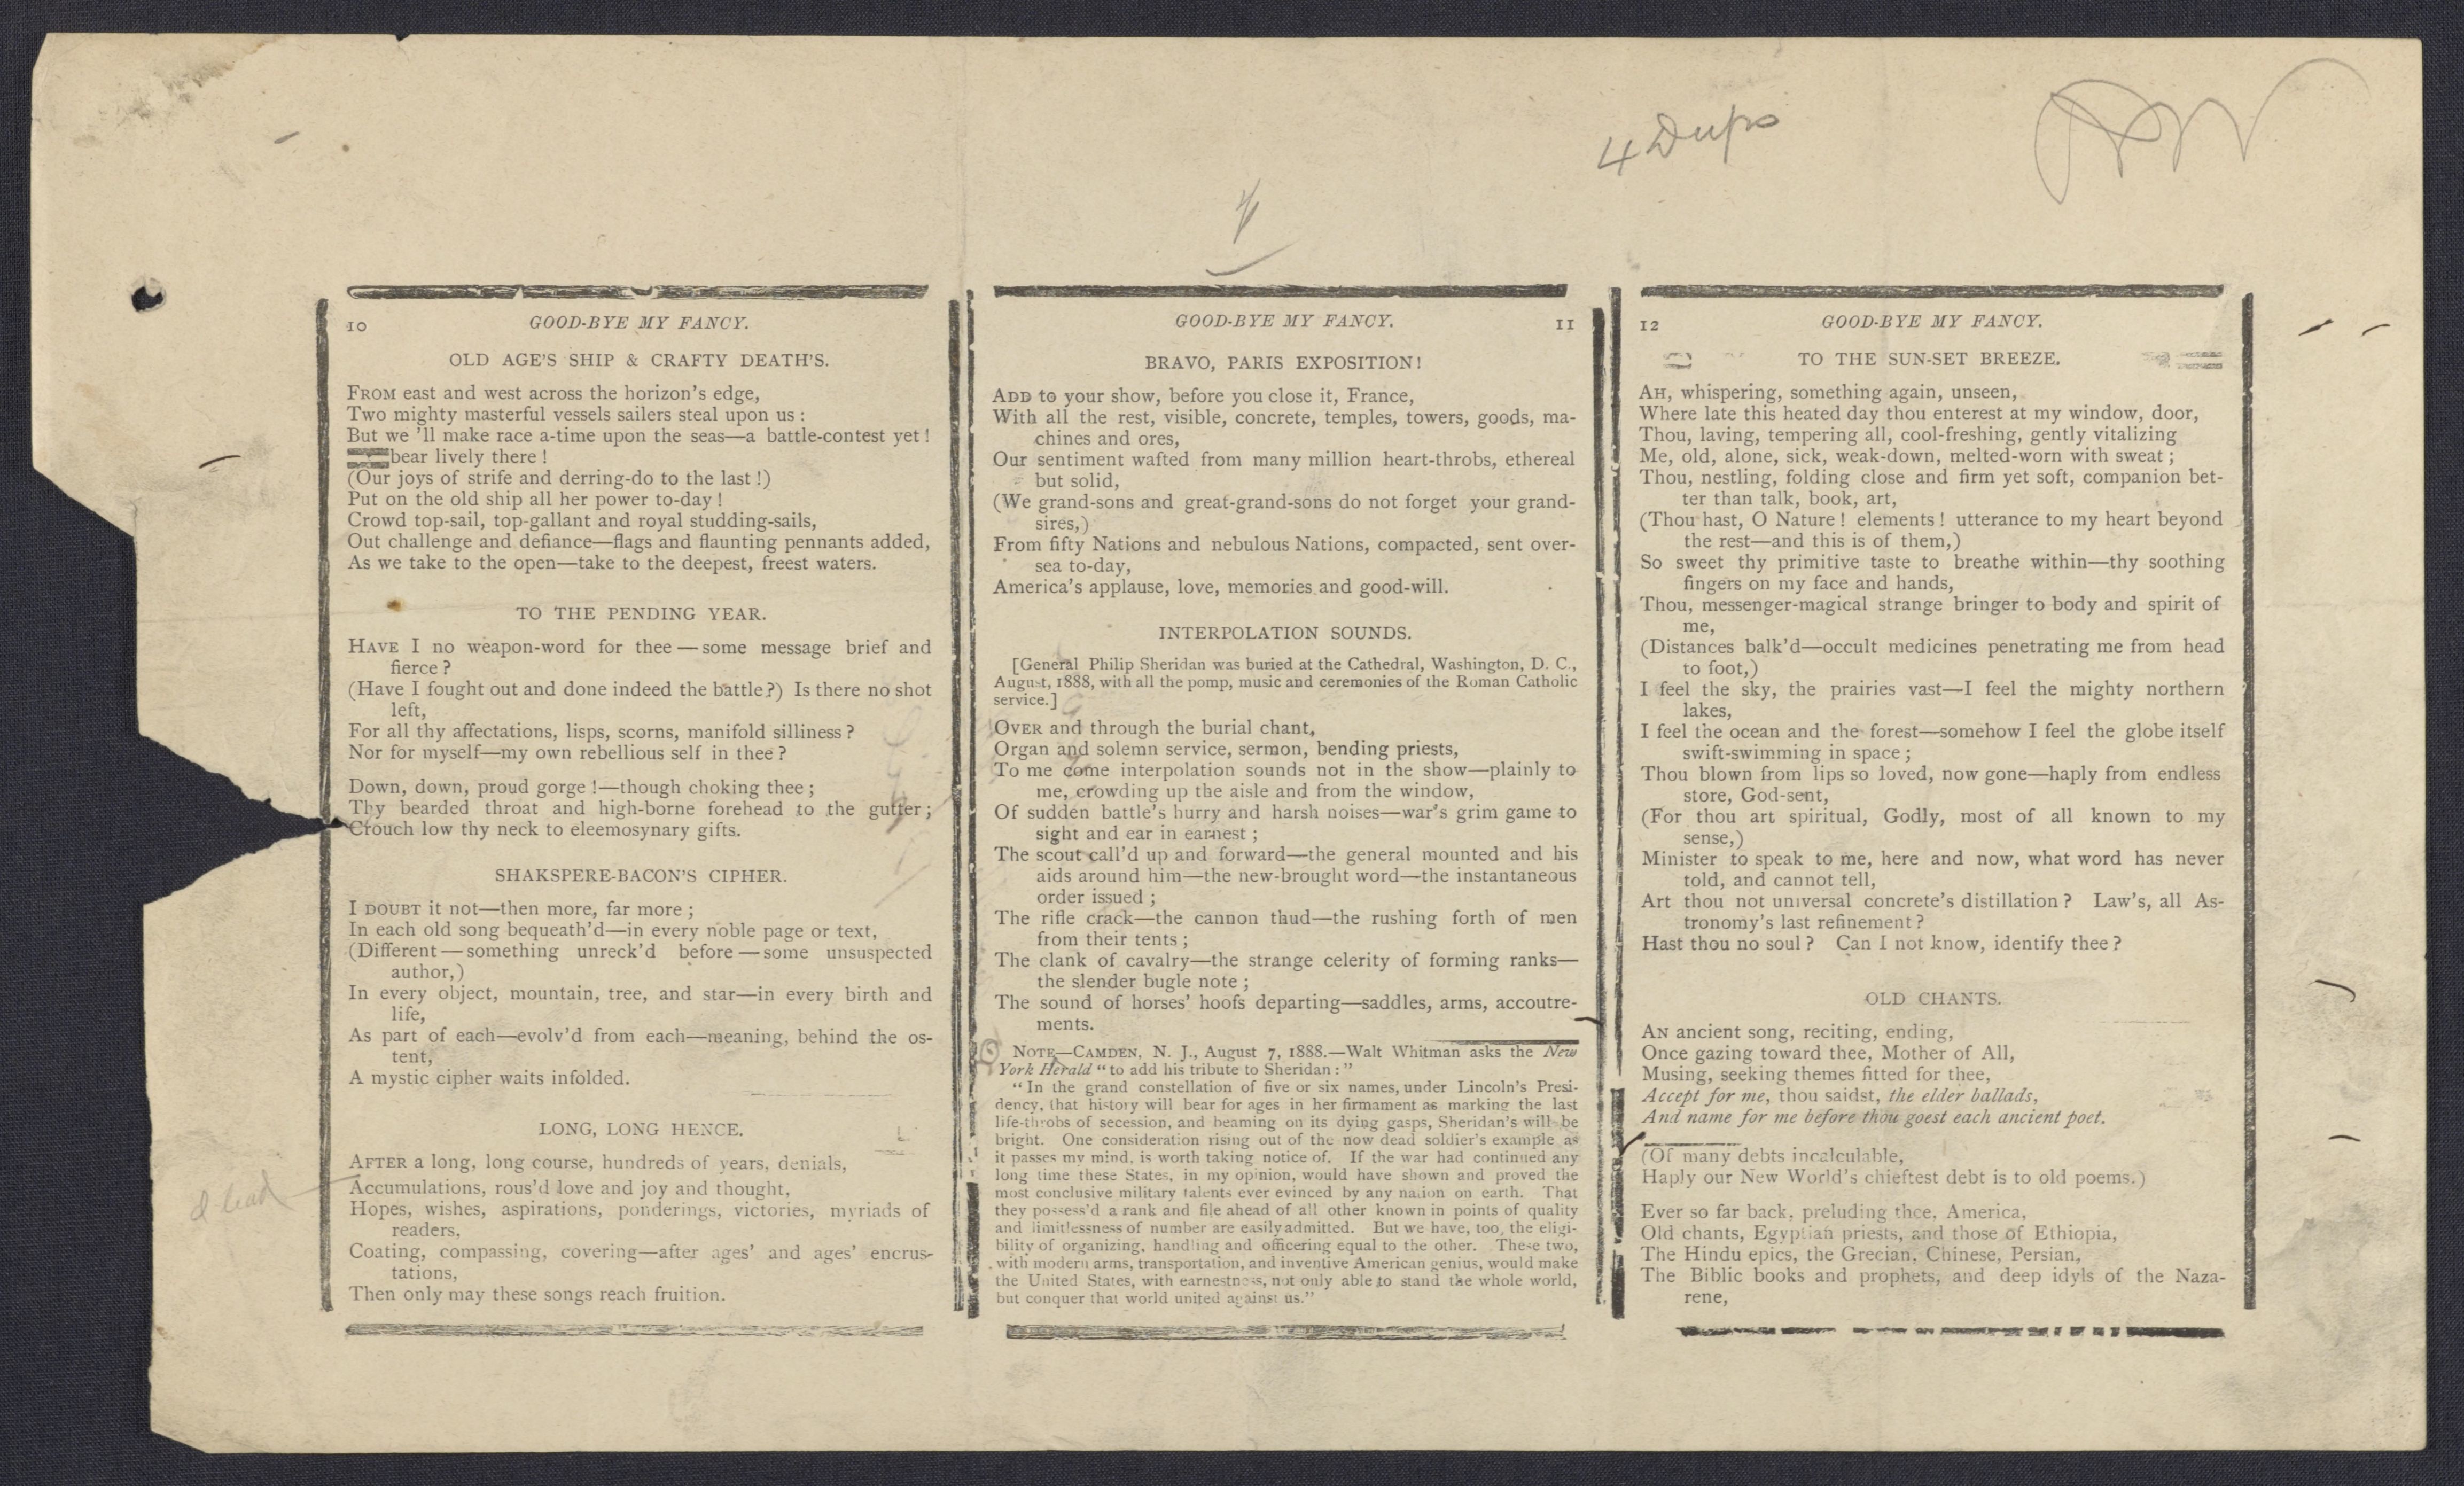 4 Dups
10 GOOD-BYE MY FANCY.
OLD AGE'S SHIP & CRAFTY DEATH'S.
FROM east and west across the horizon's edge,
Two mighty masterful vessels sailers steal upon us :
But we 'll make race a-time upon the seas—a battle-contest yet !
bear lively there !
(Our joys of strife and derring-do to the last !)
Put on the old ship all her power to-day !
Crowd top-sail, top-gallant and royal studding-sails,
Out challenge and defiance—flags and flaunting pennants added,
As we take to the open—take to the deepest, freest waters.
TO THE PENDING YEAR.
HAVE I no weapon-word for thee — some message brief and
fierce ?
(Have I fought out and done indeed the battle ?) Is there no shot
left,
For all thy affectations, lisps, scorns, manifold silliness ?
Nor for myself—my own rebellious self in thee ?
Down, down, proud gorge !—though choking thee ;
Thy bearded throat and high-borne forehead to the gutter ;
Crouch low thy neck to eleemosynary gifts.
SHAKSPERE-BACON'S CIPHER.
I DOUBT it not—then more, far more ;
In each old song bequeath'd—in every noble page or text,
(Different — something unreck'd before — some unsuspected
author,)
In every object, mountain, tree, and star—in every birth and
life,
As part of each—evolv'd from each—meaning, behind the os-
tent,
A mystic cipher waits infolded.
LONG, LONG HENCE.
AFTER a long, long course, hundreds of years, denials,
d lead
Accumulations, rous'd love and joy and thought,
Hopes, wishes, aspirations, ponderings, victories, myriads of
readers,
Coating, compassing, covering—after ages' and ages' encrus-
tations,
Then only may these songs reach fruition.
GOOD-BYE MY FANCY. 11
BRAVO, PARIS EXPOSITION !
ADD to your show, before you close it, France,
With all the rest, visible, concrete, temples, towers, goods, ma-
chines and ores,
Our sentiment wafted from many million heart-throbs, ethereal
but solid,
(We grand-sons and great-grand-sons do not forget your grand-
sires,)
From fifty Nations and nebulous Nations, compacted, sent over-
sea to-day,
America's applause, love, memories and good-will.
INTERPOLATION SOUNDS.
[General Philip Sheridan was buried at the Cathedral, Washington, D. C.,
August, 1888, with all the pomp, music and ceremonies of the Roman Catholic
service.]
OVER and through the burial chant,
Organ and solemn service, sermon, bending priests,
To me come interpolation sounds not in the show—plainly to
me, crowding up the aisle and from the window,
Of sudden battle's hurry and harsh noises—war's grim game to
sight and ear in earnest ;
The scout call'd up and forward—the general mounted and his
aids around him—the new-brought word—the instantaneous
order issued ;
The rifle crack—the cannon thud—the rushing forth of men
from their tents ;
The clank of cavalry—the strange celerity of forming ranks—
the slender bugle note ;
The sound of horses' hoofs departing—saddles, arms, accoutre-
ments.
NOTE—CAMDEN, N. J., August 7, 1888.—Walt Whitman asks the New
York Herald "to add his tribute to Sheridan :"
"In the grand constellation of five or six names, under Lincoln's Presi-
dency, that history will bear for ages in her firmament as marking the last
life-throbs of secession, and beaming on its dying gasps, Sheridan's will be
bright. One consideration rising out of the now dead soldier's example as
it passes my mind, is worth taking notice of. If the war had continued any
long time these States, in my opinion, would have shown and proved the
most conclusive military talents ever evinced by any nation on earth. That
they possess'd a rank and file ahead of all other known in points of quality
and limitlessness of number are easily admitted. But we have, too, the eligi-
bility of organizing, handling and officering equal to the other. These two,
with modern arms, transportation, and inventive American genius, would make
the United States, with earnestness, not only able to stand the whole world,
but conquer that world united against us."
12 GOOD-BYE MY FANCY.
TO THE SUN-SET BREEZE.
AH, whispering, something again, unseen,
Where late this heated day thou enterest at my window, door,
Thou, laving, tempering all, cool-freshing, gently vitalizing
Me, old, alone, sick, weak-down, melted-worn with sweat ;
Thou, nestling, folding close and firm yet soft, companion bet-
ter than talk, book, art,
(Thou hast, O Nature ! elements ! utterance to my heart beyond
the rest—and this is of them,)
So sweet thy primitive taste to breathe within—thy soothing
fingers on my face and hands,
Thou, messenger-magical strange bringer to body and spirit of
me,
(Distances balk'd—occult medicines penetrating me from head
to foot,)
I feel the sky, the prairies vast—I feel the mighty northern
lakes,
I feel the ocean and the forest—somehow I feel the globe itself
swift-swimming in space ;
Thou blown from lips so loved, now gone—haply from endless
store, God-sent,
(For thou art spiritual, Godly, most of all known to my
sense,)
Minister to speak to me, here and now, what word has never
told, and cannot tell,
Art thou not universal concrete's distillation ? Law's, all As-
tronomy's last refinement ?
Hast thou no soul ? Can I not know, identify thee ?
OLD CHANTS.
AN ancient song, reciting, ending,
Once gazing toward thee, Mother of All,
Musing, seeking themes fitted for thee,
Accept for me, thou saidst, the elder ballads,
And name for me before thou goest each ancient poet.
(Of many debts incalculable,
Haply our New World's chieftest debt is to old poems.)
Ever so far back, preluding thee, America,
Old chants, Egyptian priests, and those of Ethiopia,
The Hindu epics, the Grecian, Chinese, Persian,
The Biblic books and prophets, and deep idyls of the Naza-
rene,